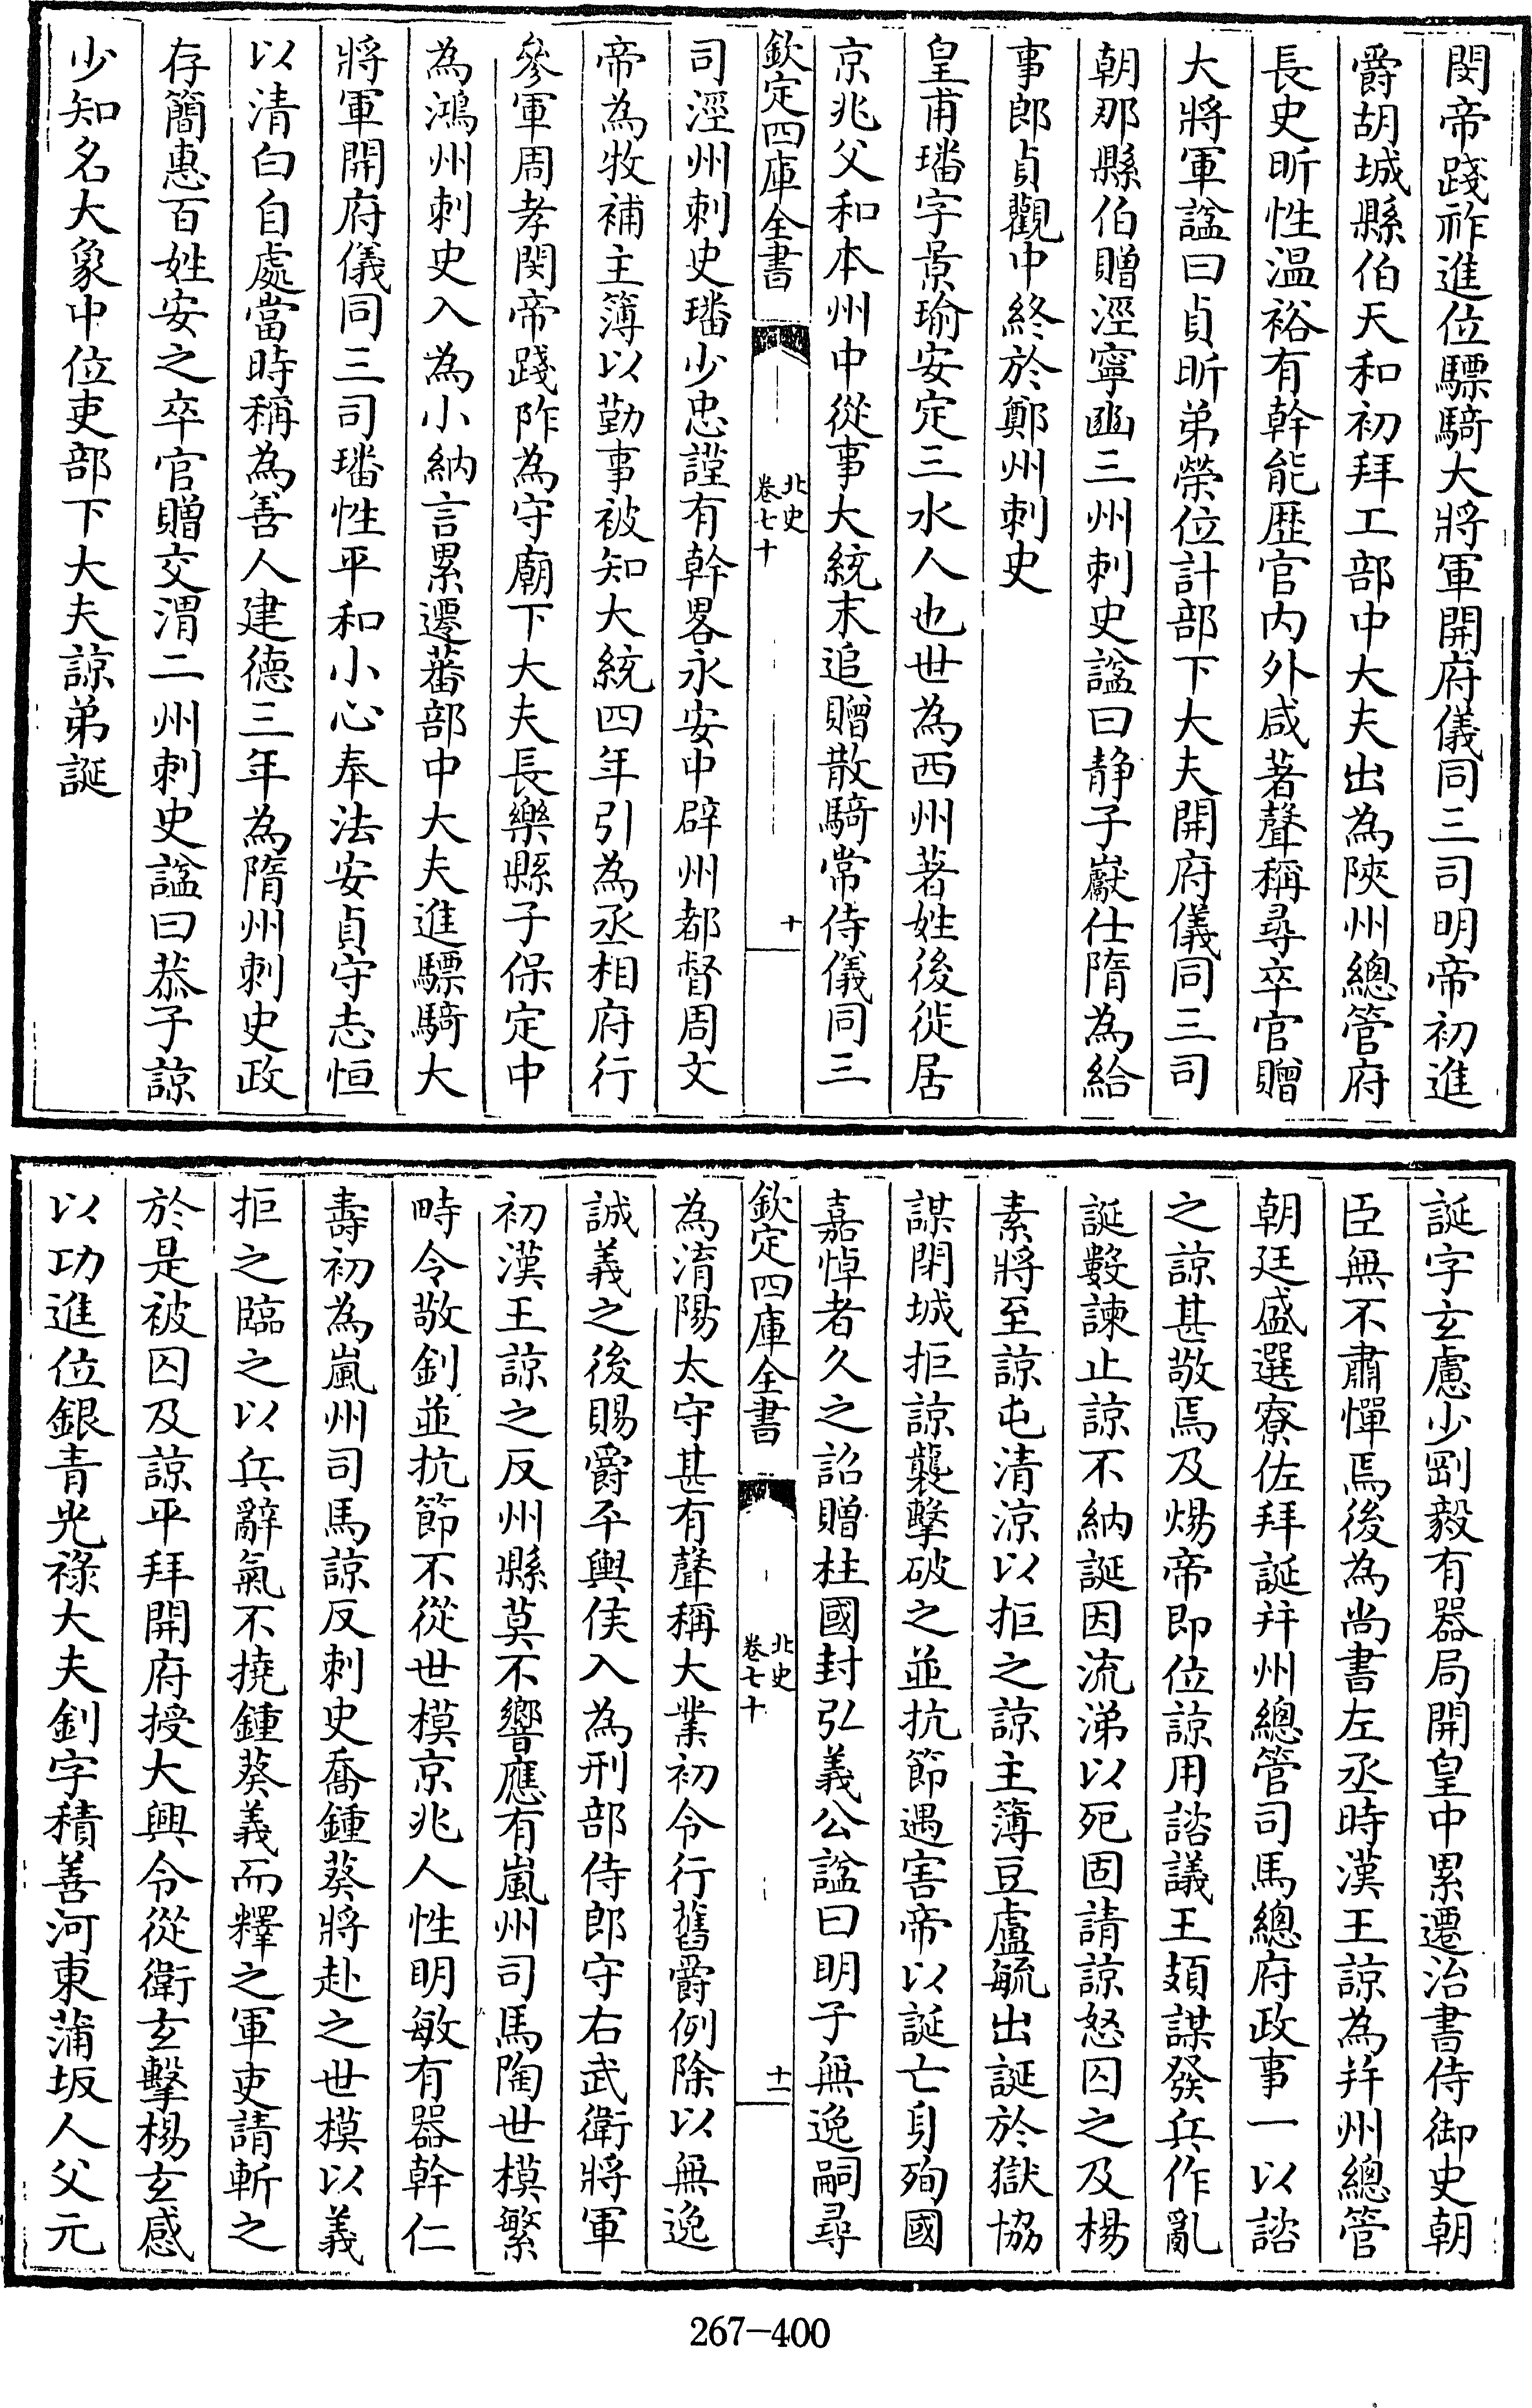 閔帝踐祚進位驃騎大將軍開府儀同三司明帝初進
爵胡城縣伯天和初拜工部中大夫出為陜州總管府
長史昕性溫裕有幹能歷官内外咸著聲稱尋卒官贈
大將軍諡曰貞昕弟榮位計部下大夫開府儀同三司
朝那縣伯贈涇寧豳三州刺史諡曰靜子巚仕隋為給
事郎貞觀中終於鄭州刺史
皇甫璠字景瑜安定三水人也世為西州著姓後徙居
京兆父和本州中從事大統末追贈散騎常侍儀同三
欽定四庫全書
北史
卷七十
十
司涇州刺史璠少忠謹有幹畧永安中辟州都督周文
帝為牧補主簿以勤事被知大統四年引為丞相府行
參軍周孝閔帝踐阼為守廟下大夫長樂縣子保定中
為鴻州刺史入為小納言累遷蕃部中大夫進驃騎大
將軍開府儀同三司璠性平和小心奉法安貞守志恒
以清白自處當時稱為善人建德三年為隋州刺史政
存簡惠百姓安之卒官贈交渭二州刺史諡曰恭子諒
少知名大象中位吏部下大夫諒弟誕
誕字玄慮少剛毅有器局開皇中累遷治書侍御史朝
臣無不肅憚焉後為尚書左丞時漢王諒為幷州總管
朝廷盛選寮佐拜誕幷州總管司馬總府政事一以諮
之諒甚敬焉及煬帝即位諒用諮議王頍謀發兵作亂
誕數諫止諒不納誕因流涕以死固請諒怒囚之及楊
素將至諒屯清涼以拒之諒主簿豆盧毓出誕於獄協
謀閉城拒諒襲擊破之並抗節遇害帝以誕亡身殉國
嘉悼者久之詔贈柱國封弘義公諡曰明子無逸嗣尋
欽定四庫全書
北史
卷七十
十一
為淯陽太守甚有聲稱大業初令行舊爵例除以無逸
誠義之後賜爵平輿侯入為刑部侍郎守右武衛將軍
初漢王諒之反州縣莫不響應有嵐州司馬陶世模繁
畤令敬釗並抗節不從世模京兆人性明敏有器幹仁
壽初為嵐州司馬諒反刺史喬鍾葵將赴之世模以義
拒之臨之以兵辭氣不撓鍾葵義而釋之軍吏請斬之
於是被囚及諒平拜開府授大興令從衛玄擊楊玄感
以功進位銀青光祿大夫釗字積善河東蒲坂人父元
267-400